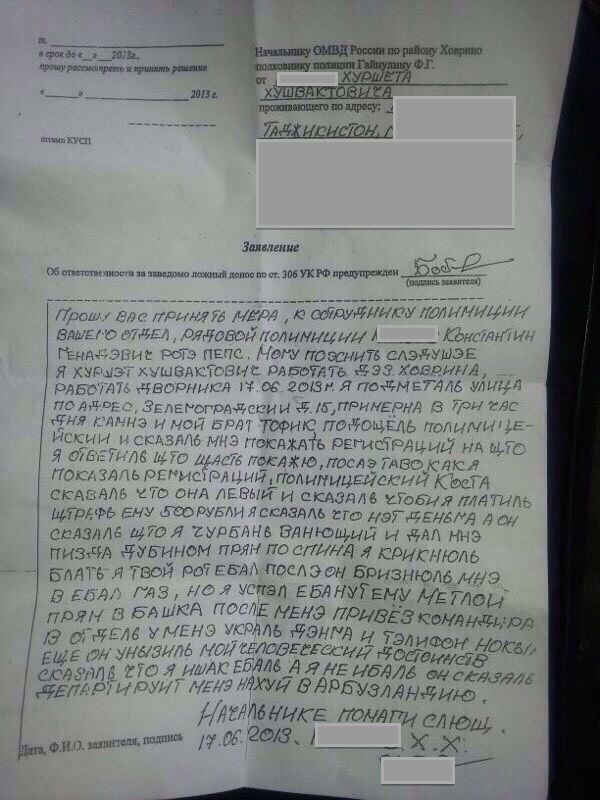 т.
в срок до «__» ____2013г.,
прошу рассмотреть и принять решение
«______» ____________________ 2013 г.
штамп КУСП
Начальнику ОМВД России по району Ховрино
полковнику полиции Гайнулину Ф.Г.
от ХУРШЕТА
ХУШВАКТОВИЧА
проживающего по адресу:
ТАДЖИКИСТОН,
Заявление
Об ответственности за заведомо ложный донос по ст. 306 УК РФ предупрежден
(подпись заявителя)
ПРОШУ ВАС ПРИНЯТЬ МЕРА, К СОТРУДНИКУ ПОЛИМИЦИИ
ВАШЕГО ОТДЕЛ, РЯДОВОЙ ПОЛИМИЦИИ КОНСТАНТИН
ГЕНАДЭВИЧ РОТЭ ПЕПС. МОМУ ПОЭНИТЬ СЛЭДУШЭЕ
Я ХУРШЭТ ХУШВАКТОВИЧ РАБОТАТЬ ДЭЗ ХОВРИНА,
РАБОТАТЬ ДВОРНИКА 17.06.2013М. Я ПОДМЕТАЛЬ УЛИЦА
ПО АДРЕС, ЗЕЛЕМОГРАДСКИЙ Д.15, ПРИМЕРНА В ТРИ ЧАС
ДНЯ КАМНЭ И МОЙ БРАТ ТОФИК ПОДОЩЕЛЬ ПОЛИМИЦЕ-
ЙСКИЙ И СКАЗАЛЬ МНЭ ПОКАЖАТЬ РЕГИСТРАЦИЙ НА ЩТО
Я ОТВЕТИЛЬ ЩТО ЩАСТЬ ПОКАЖЮ, ПОСЛЭ ТАВО КАК Я
ПОКАЗАЛЬ РЕМИСТРАЦИЙ, ПОЛИМИЦЕЙСКИЙ КОСТА
СКАЗАЛЬ ЧТО ОНА ЛЕВЫЙ И СКАЗАЛЬ ЧТОБИ Я ПЛАТИЛЬ
ЩТРАФЬ ЕМУ 500 РУБЛИ Я СКАЗАЛЬ ЧТО НЭТ ДЕНЬМА А ОН
СКАЗАЛЬ ЩТО Я ЧУРБАНЬ ВАНЮЩИЙ И ДАЛ МНЭ
ПИЗДА ДУБИНОМ ПРЯМ ПО СПИНА Я КРИКНЮЛЬ
БЛАТЬ Я ТВОЙ РОТ ЕБАЛ ПОСЛЭ ОН БРИЗНЮЛЬ МНЭ
В ЕБАЛ ГАЗ, НО Я УСПЭЛ ЕБАНУТ ЕМУ МЕТЛОЙ
ПРЯМ В БАШКА ПОСЛЕ МЕНЭ ПРИВЁЗ КОМАНДИРА
В ОТДЕЛЬ У МЕНЭ УКРАЛЬ ДЭНМА И ТЭЛИФОН
ЕЩЕ ОН УНЫЗИЛЬ МОЙ ЧЕЛОВЕЧЕСКИЙ ДОСТОИНСТВ
СКАЗАЛЬ ЧТО Я ИШАК ЕБАЛЬ А Я НЕ ИБАЛЬ ОН СКАЗАЛЬ
ДЕПАРТИРУИТ МЕНЭ НАХУЙ В АРБУЗЛАНДИЮ.
НАЧАЛЬНИКЕ ПОМАГИ СЛЮЩ.
Дата, Ф.И.О. заявителя, подпись 17.06.2013. Х.Х.